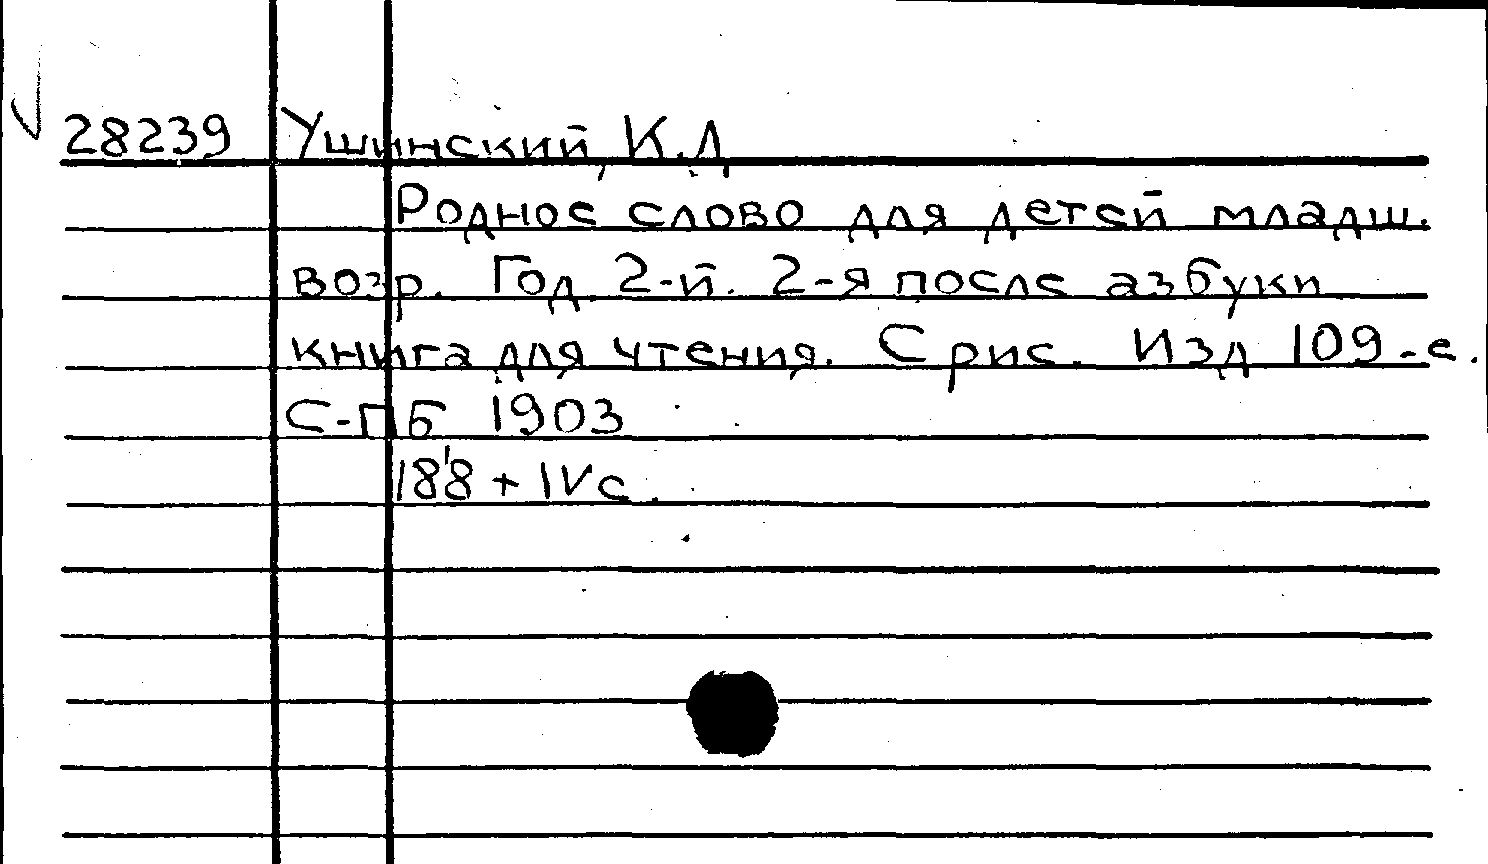 28239 Ушинский, К.Д
Родное слово для детей младш.
возр. Год 2-й. 2-я после азбуки
книга для чтения. С рис. Изд 109-е.
С-ПБ 1903
188 + IV с.